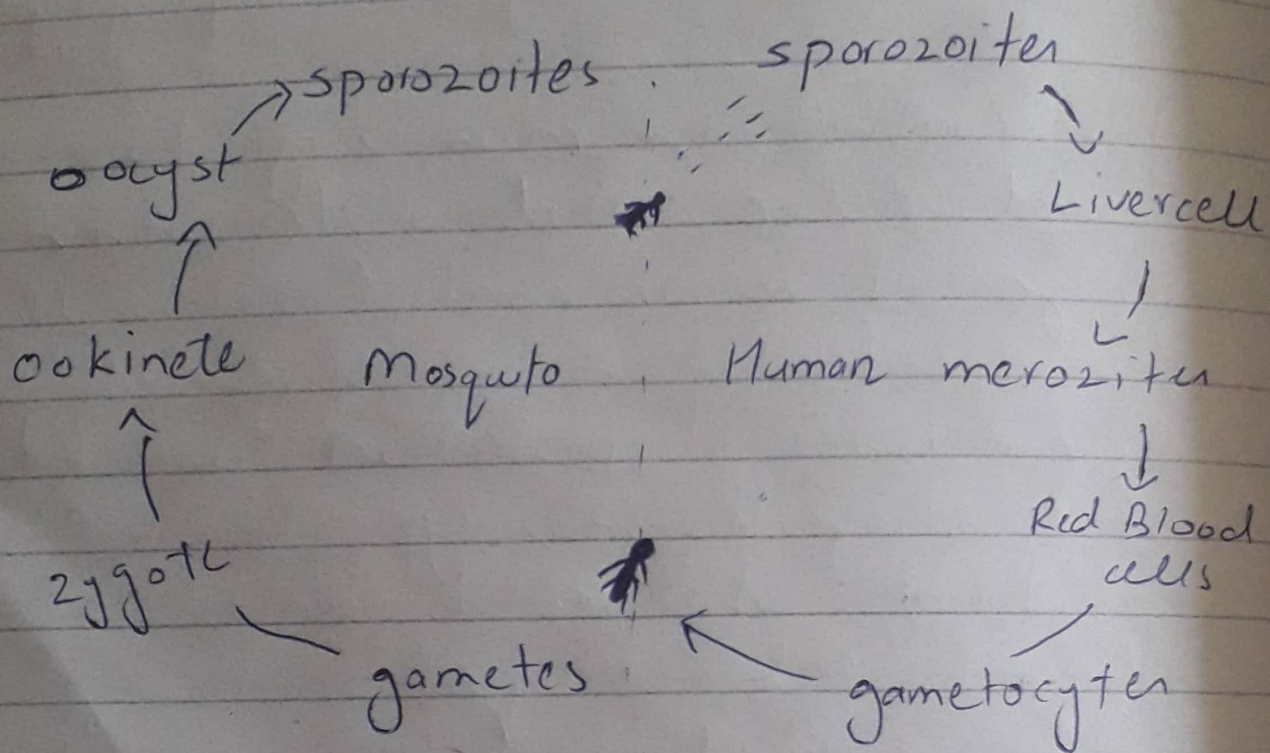 sporozoites
sporozoites
oocyst
Livercell
ookinete
Mosquto
Human
merozites
Red Blood
cells
zygote
gametes
gametocytes